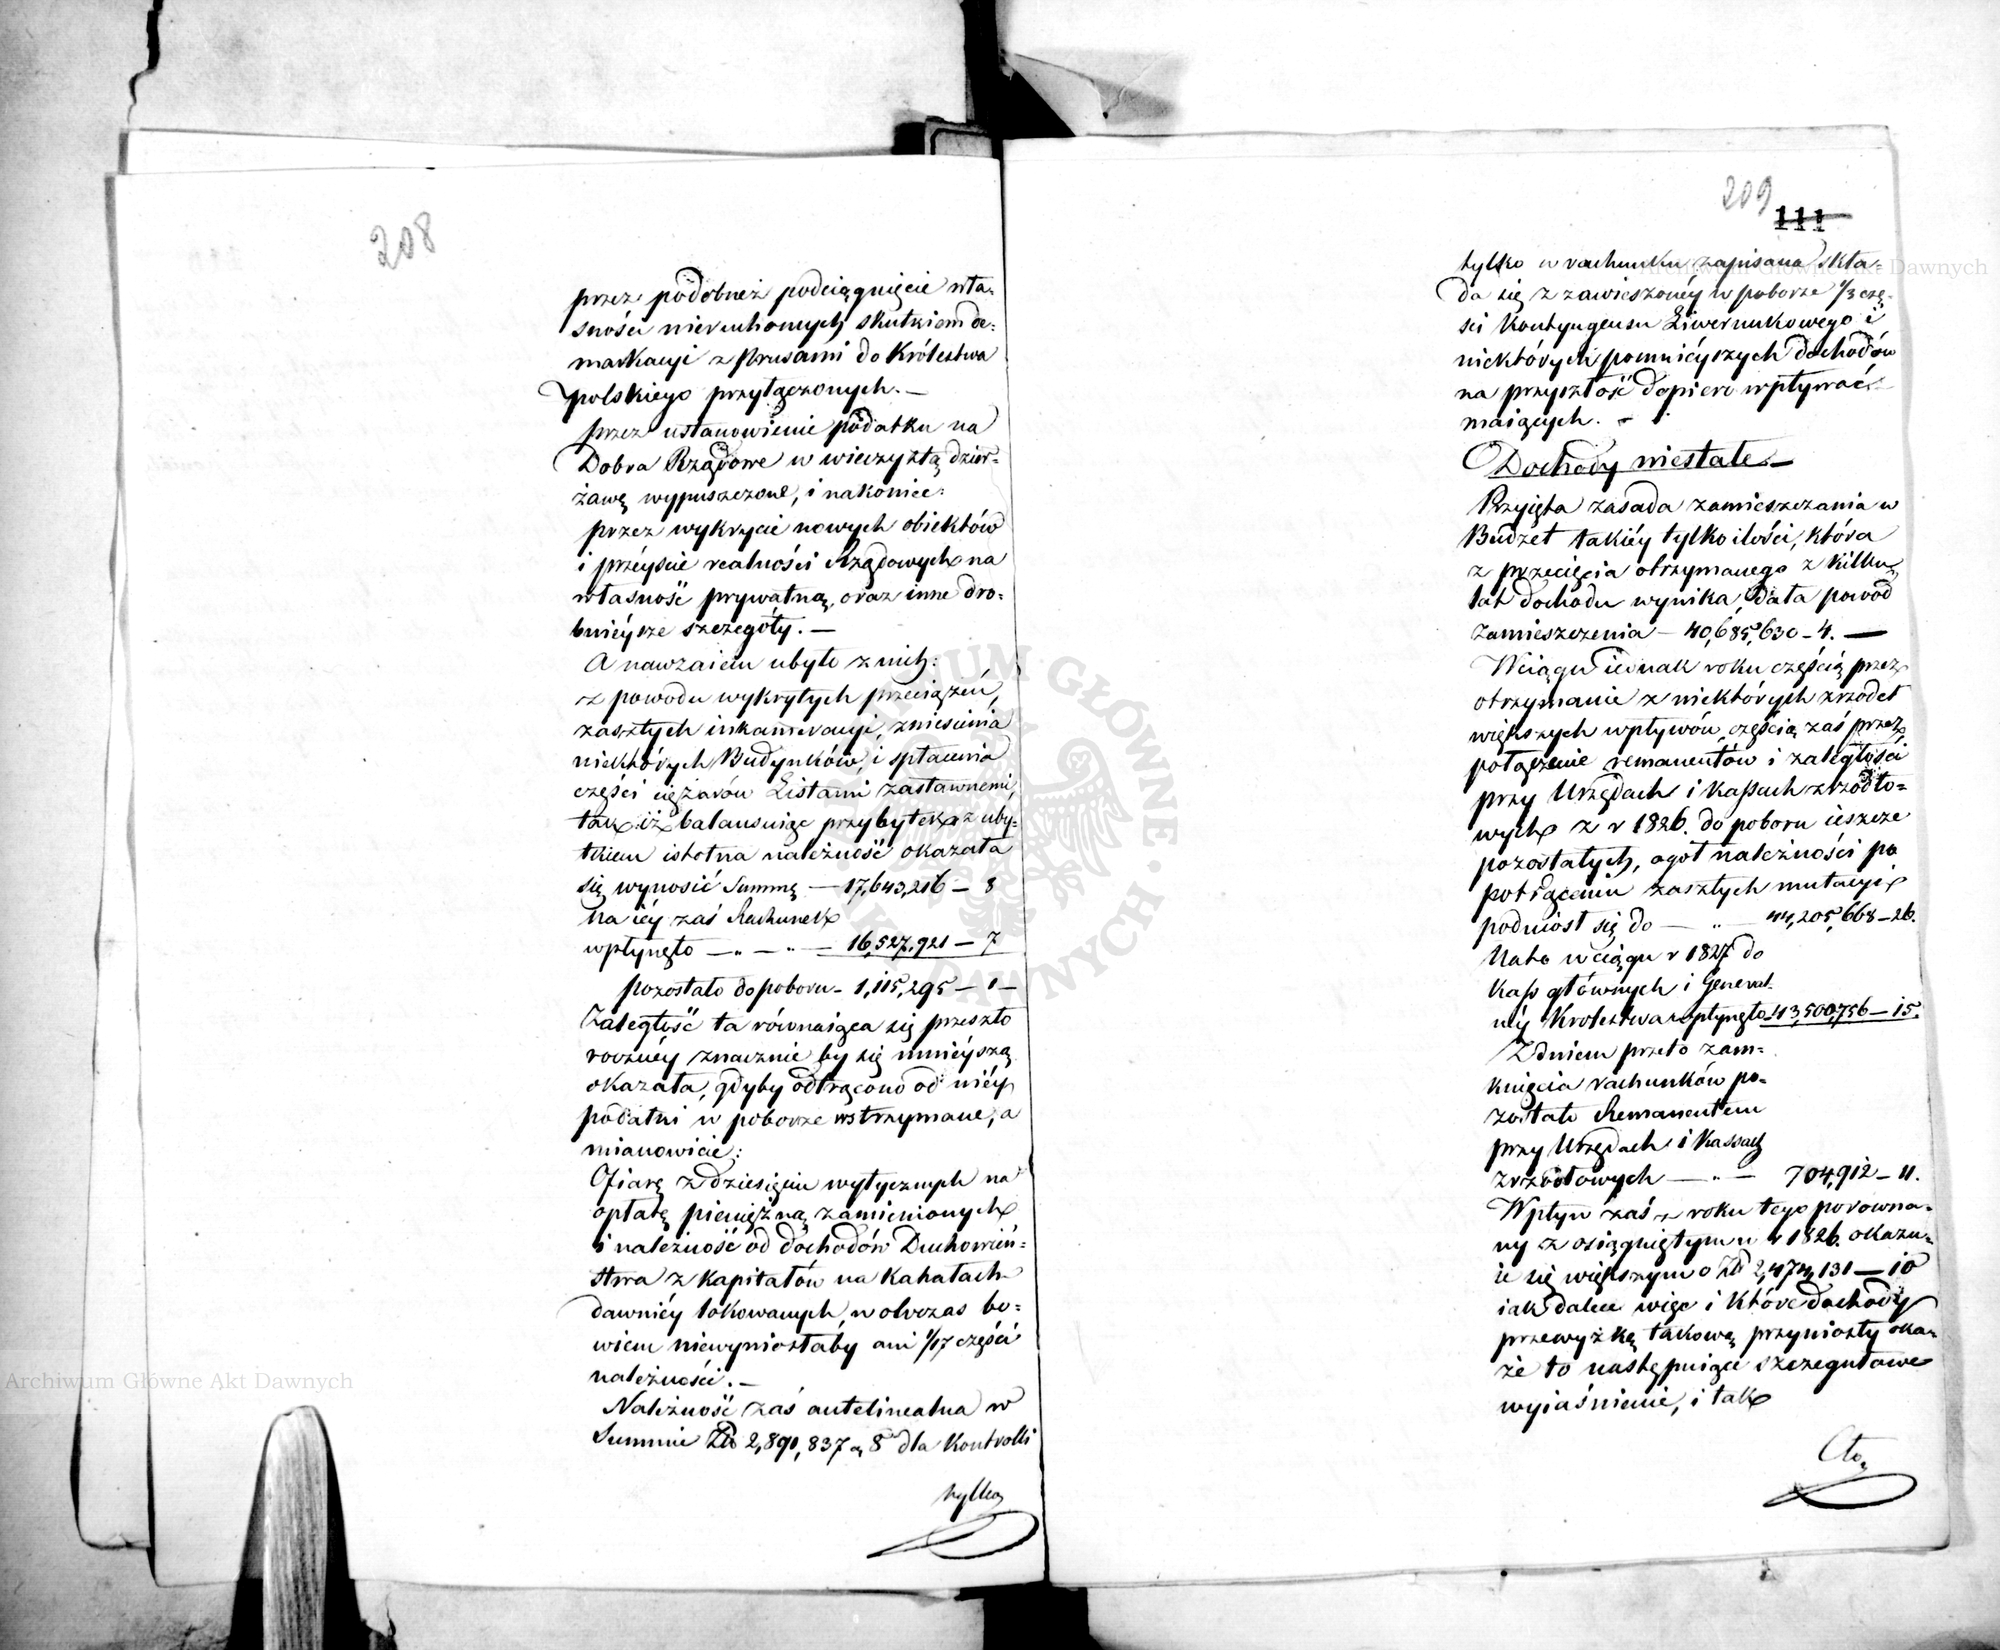 208
przez podobneż podciągnięcie wła-
sności nieruchomych skutkiem de-
markacyi z Prusami do Królestwa
Polskiego przyłączonych. —
przez ustanowienie podatku na
Dobra Rządowe w wieczystą dzier-
żawę wypuszczone, i nakoniec:
przez wykrycie nowych obiektów
i przéyście realności Rządowych na
własność prywatną, oraz inne dro-
bnieysze szczegóły. —
A nawzaiem ubyło z nich:
z powodu wykrytych przeciążeń,
zaszłych inkameracyi, zniesienia
niektórych Budynków, i spłacenia
części ciężarów Listami zastawnemi,
tak iż balansuiąc przybytek z uby-
tkiem istotna należność okazała
się wynosić Summę — 17,643,216 — 8
na iéy zaś Rachunek
wpłynęło — „ — „ — 16,527,921 — 7
pozostało do poboru — 1,115,295 — 1 —
Zaległość ta równaiąca się przeszło
roczney znacznie by się mnieyszą
okazała, gdyby odtrącono od niéy
podatki w poborze wstrzymane, a
mianowicie:
Ofiarę z dziesięcin wytycznych na
opłatę pieniężną zamienionych
i należność od dochodów Duchowień-
stwa z kapitałów na Kahałach
dawniéy lokowanych, w ówczas bo-
wiem niewyniosłaby ani 1/17 części
należności. —
Należność zaś antelinealna w
Summie Złp 2,890,837 g 8 dla Kontrolli
tylko
209
111
tylko w rachunku zapisana skła-
da się z zawieszonéy w poborze 1/3 czę-
ści Kontyngensu Liwerunkowego i
niektórych pomnieyszych dochodów
na przyszłość dopiero wpływać
maiących. —
Dochody niestałe. —
Przyięta zasada zamieszczania w
Budżet takiéy tylko ilości, która
z przecięcia otrzymanego z kilku
lat dochodu wynika, dała powód
zamieszczenia — 40,685,630 — 4. —
W ciągu iednak roku częścią przez
otrzymanie z niektórych źrzódeł
większych wpływów, częścią zaś przez
połączenie remanentów i zaległości
przy Urzędach i Kassach źrzódło-
wych z r 1826. do poboru ieszcze
pozostałych, ogół należności po
potrąceniu zaszłych mutacyi
podniósł się do — „ — 44,205,668 — 26.
Na to w ciągu r 1827 do
Kass głównych i General-
néy Królestwa wpłynęło 43,500,756 — 15.
Z dniem przeto zam-
knięcia rachunków po-
zostało Remanentem
przy Urzędach i Kassach
źrzódłowych — „ — 704,912 — 11.
Wpływ zaś z roku tego porówna-
ny z osiągniętym w r 1826. okazu-
ie się większym o Złp 2,474,131 — 10
iak dalece więc i które dochody
przewyżkę takową przyniosły oka-
że to następuiące szczegułowe
wyiaśnienie, i tak
Cło
Archiwum Główne Akt Dawnych
Archiwum Główne Akt Dawnych
ARCHIWUM GŁÓWNE AKT DAWNYCH